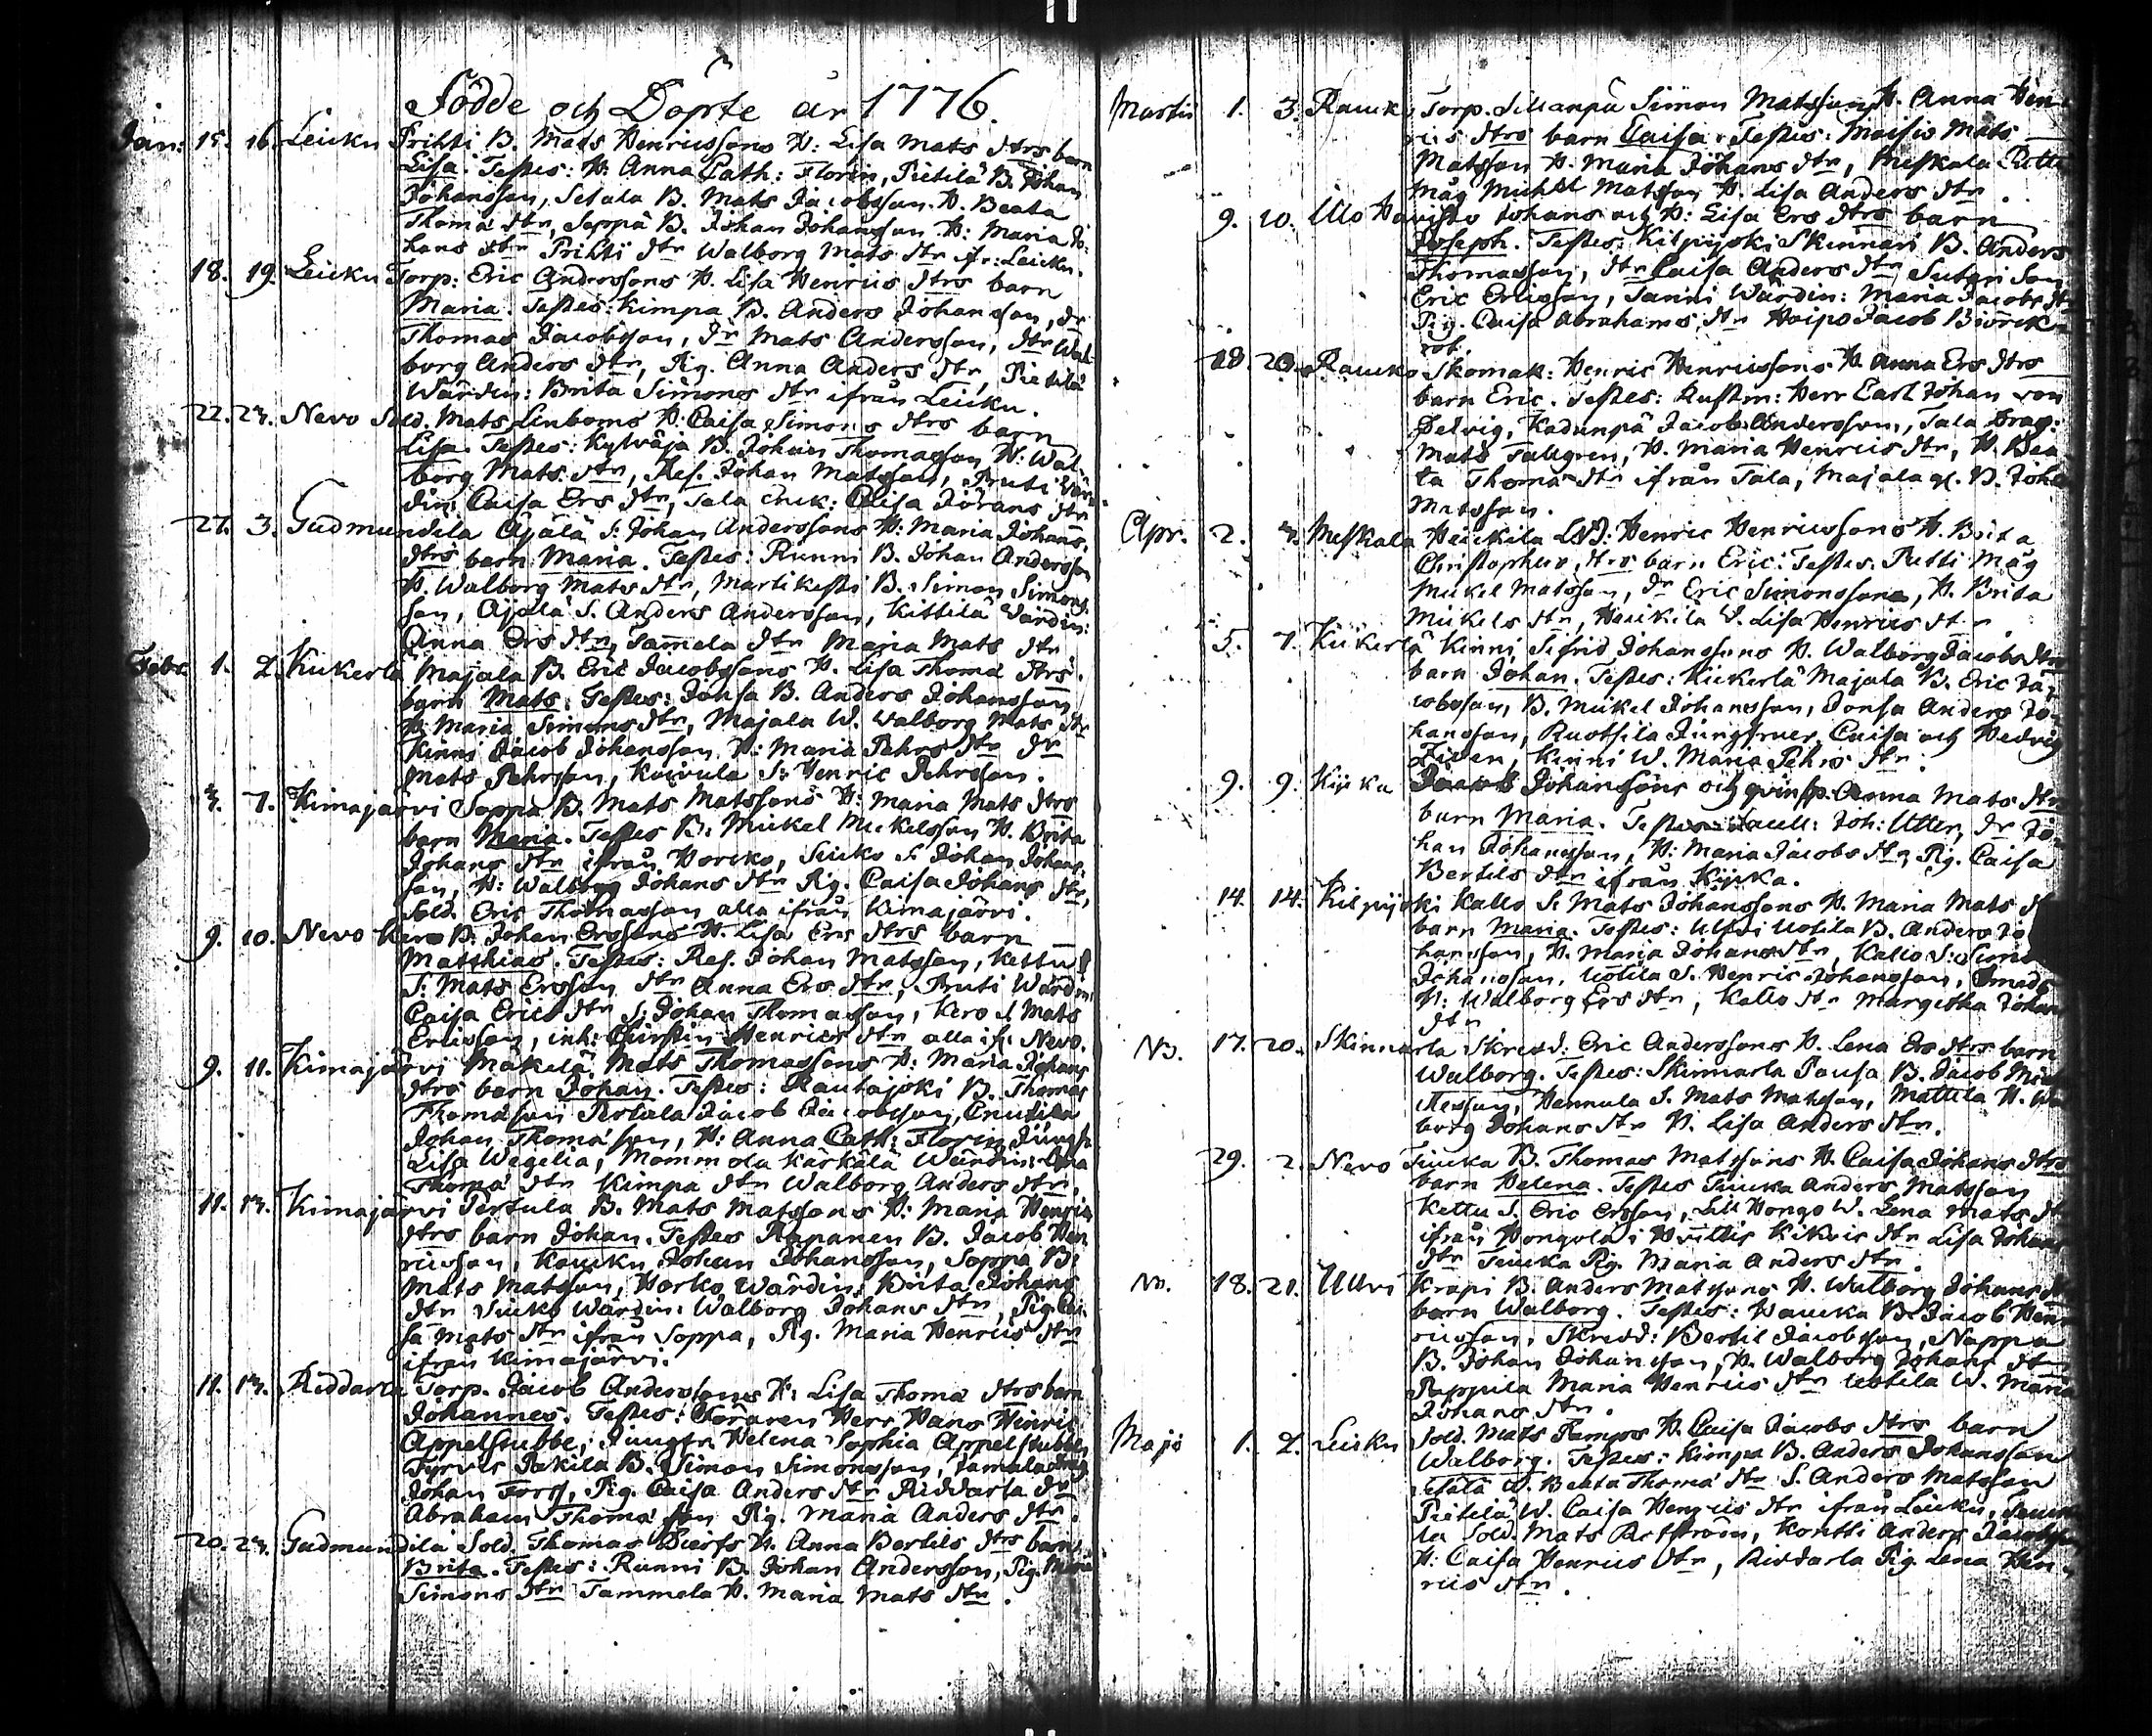 Födde och Döpte år 1776.
Jan: 15. 16. Leicku Prihti B. Mats Henricssons H: Lisa Mats dtrs barn
Lisa. Testes: H. Anna Cath: Florin, Pietilä B. Johan
Johansson, Setala B. Mats Jacobsson H. Beata
Thoma dtr, Seppä B. Johan Johansson H: Maria Jo-
hans dtr Prihti dtr Walborg Mats dtr ifr: Leicku.
18. 19. Leicku Torp: Eric Anderssons H. Lisa Henrics dtrs barn
Maria. Testes: Kimpa B. Anders Johansson, dr
Thomas Jacobsson, dr Mats Andersson, dtr Wal-
borg Anders dtr, Pig. Anna Anders dtr, Pietilä
Wärdin: Brita Simons dtr ifrån Leicku.
22. 23. Nevo Sold. Mats Linboms H: Caisa Simons dtrs barn
Lisa. Testes: Kylväja B. Johan Thomasson H: Wal-
borg Mats dtr, Res. Johan Matsson, Pruti Wär-
din: Caisa Ers dtr, Tala Enk: Caisa Jörans dtr
27. 3. Gudmundila Äjälä S: Johan Anderssons H: Maria Johans
dtrs barn Maria. Testes: Runni B. Johan Andersson
H. Walborg Mats dtr, Martikesti B. Simon Simons-
son, Äjälä S. Anders Andersson, Kittilä Wärdin:
Anna Ers dtr, Tamela dtr Maria Mats dtr
Febr. 1. 2. Kukerla Majala B. Eric Jacobssons H. Lisa Thoma dtrs
barn Mats. Testes: Jonsa B. Anders Johansson
H: Maria Simons dtr, Majala W. Walborg Mats dtr
Kinni Jacob Johansson H: Maria Pehrs dtr dr
Mats Pehrsson, Koivula S: Henric Pehrsson.
3. 7. Kimajärvi Soppa B. Mats Matssons H: Maria Mats dtrs
barn Maria. Testes B. Mickel Mickelsson H. Brita
Johans dtr ifrån Horcko, Sucko S. Johan Johans-
son, H: Walborg Johans dtr Pig. Caisa Johans dtr,
Sold. Eric Thomasson alla ifrån Kimajärvi.
9. 10. Nevo Kero B. Johan Erssons H. Lisa Ers dtrs barn
Matthias. Testes: Res. Johan Matsson, Kettu
S: Mats Ersson dtr Anna Ers dtr, Pruti Wärdin:
Caisa Erics dtr S: Johan Thomasson, Kero S Mats
Ericsson, inh: Christin Henrics dtr alla ifr: Nevo.
9. 11. Kimajärvi Mäkelä Mats Thomassons H: Maria Johans
dtrs barn Johan. Testes: Rautajoki B. Thomas
Thomasson Pertula Jacob Jacobsson,
Johan Thomasson, H: Anna Cath: Florin Jungfr.
Lisa Wegelia, Mommola Kärkälä Wärdin: Lena
Thoma dtr Kimpa dtr Walborg Anders dtr.
11. 13. Kimajärvi Pertula B. Mats Matssons H: Maria Henrics
dtrs barn Johan. Testes Rapanen B. Jacob Hen
ricsson, Koucku Johan Johansson, Soppa B:
Mats Matsson, Horko Wärdin: Brita Johans
dtr Sucko Wärdin: Walborg Johans dtr, Pig. Cai-
sa Mats dtr ifrån Soppa, Pig. Maria Henrics dtr
ifrån Kimajärvi.
11. 13. Riddarla Torp. Jacob Anderssons H: Lisa Thoma dtrs barn
Johannes. Testes: Föraren Herr Hans Hinric
Appelstubbe, Jungfr. Helena Sophia Appelstubbe,
Tyrvis Pakila B. Simon Simonsson, Jamala drag.
Johan Forss, Pig. Caisa Anders dtr Riddarla dr
Abraham Thomasson Pig. Maria Anders dtr.
20. 23. Gudmundila Sold. Thomas Bierfs H. Anna Bertils dtrs barn
Brita. Testes: Runni B. Johan Andersson, Pig. Maria
Simons dtr Tammela H. Maria Mats dtr.
Martii 1. 3. Raucko Torp. Sillanpä Simon Matsson H. Anna Hen
rics dtrs barn Caisa. Testes: Maisio Mats
Matsson H. Maria Johans dtr, Meskala
Måg Michel Matsson H. Lisa Anders dtr.
9. 10. Ulo Havisto Johans och H: Lisa Ers dtrs barn
Joseph. Testes: Kilpijoki Skinnari B. Anders
Thomasson, dtr Caisa Anders dtr Sutari Son
Eric Ericsson, Tanni Wärdin: Maria Jacobs dtr
Pig. Caisa Abrahams dtr Haipo Jacob Biörck-
rot.
18. 20. Raucko Skomak: Henric Henricssons H. Anna Ers dtrs
barn Eric. Testes: Rustm: Herr Carl Johan von
Delvig, Kadunpä Jacob Andersson, Tala Drag:
Mats Tallgren, H. Maria Henrics dtr, H. Bea
ta Thoma dtr ifrån Tala, Majala gl. B. Johan
Matsson.
Apr. 2. 3. Meskala Heickila LB: Henric Henricssons H. Brita
Christophers dtrs barn Eric. Testes: Putti Måg
Mickel Matsson, dr Eric Simonssons, H. Brita
Mickels dtr, Heickila W. Lisa Henrics dtr.
5. 7. Kukerlä Kinni Sifrid Johanssons H. Walborg Jacobs dtrs
barn Johan. Testes: Kuckerlä Majala B. Eric Ja-
cobsson, B. Mickel Johansson, Jonsa Anders Jo-
hansson, Ruotsila Jungfruer Caisa och Hedvig
Ziden, Kinni W. Maria Pehrs dtr.
9. 9. Kijcka Jacob Johanssons och qvinsp. Anna Mats dtrs
barn Maria. Testes: Joh: Utter, dr Jo-
han Johansson, H: Maria Jacobs dtr, Pig. Caisa
Bertils dtr ifrån Kijcka.
14. 14. Kilpijoki Kallo S: Mats Johanssons H. Maria Mats
barn Maria. Testes: Ullvi Uotila B. Anders Jo
hansson, H. Maria Johans dtr, Kallo S: Simo
Johansson, Uotila S. Henric Johansson, Smeds
H: Walborg Ers dtr, Kallo dtr Margetha Johans
dtr
No. 17. 20. Skinnarla Skredd: Eric Anderssons H. Lena Ers dtrs barn
Walborg. Testes: Skinnarla Pausa B. Jacob Mic
kelsson, Hennula S. Mats Matsson, Mattila H. Wal
borg Johans dtr H. Lisa Anders dtr.
29. 2. Nevo Tiucka B. Thomas Matssons H. Caisa Johans dtrs
barn Helena. Testes Tiucka Anders Matsson
Kettu S. Eric Ersson, Lill Hongo W. Lena Mats dtr
ifrån Hongola i Hvittis Kikois dtr Lisa Johans
dtr Tiucka Pig. Maria Anders dtr.
No. 18. 21. Ullvi Krapi B. Anders Matssons H. Walborg Johans dtrs
barn Walborg. Testes: Haucka B. Jacob Hen
ricsson, Skredd: Bertil Jacobsson, Nappa
B. Johan Johansson, H. Walborg Johans dtr
Pappila Maria Henrics dtr Uotila W. Maria
Johans dtr.
Maji 1. 2. Leicku Sold. Mats Ramps H. Caisa Jacobs dtrs barn
Walborg. Testes: Kimpa B. Anders Johansson
Setälä W. Beata Thoma dtr S. Anders Matsson
Pietelä W. Caisa Henrics dtr ifrån Leicku,
la Sold. Mats Artström, Kontti Anders Jacobsson
H: Caisa Henrics dtr, Riddarla Pig. Lena Hen-
rics dtr.